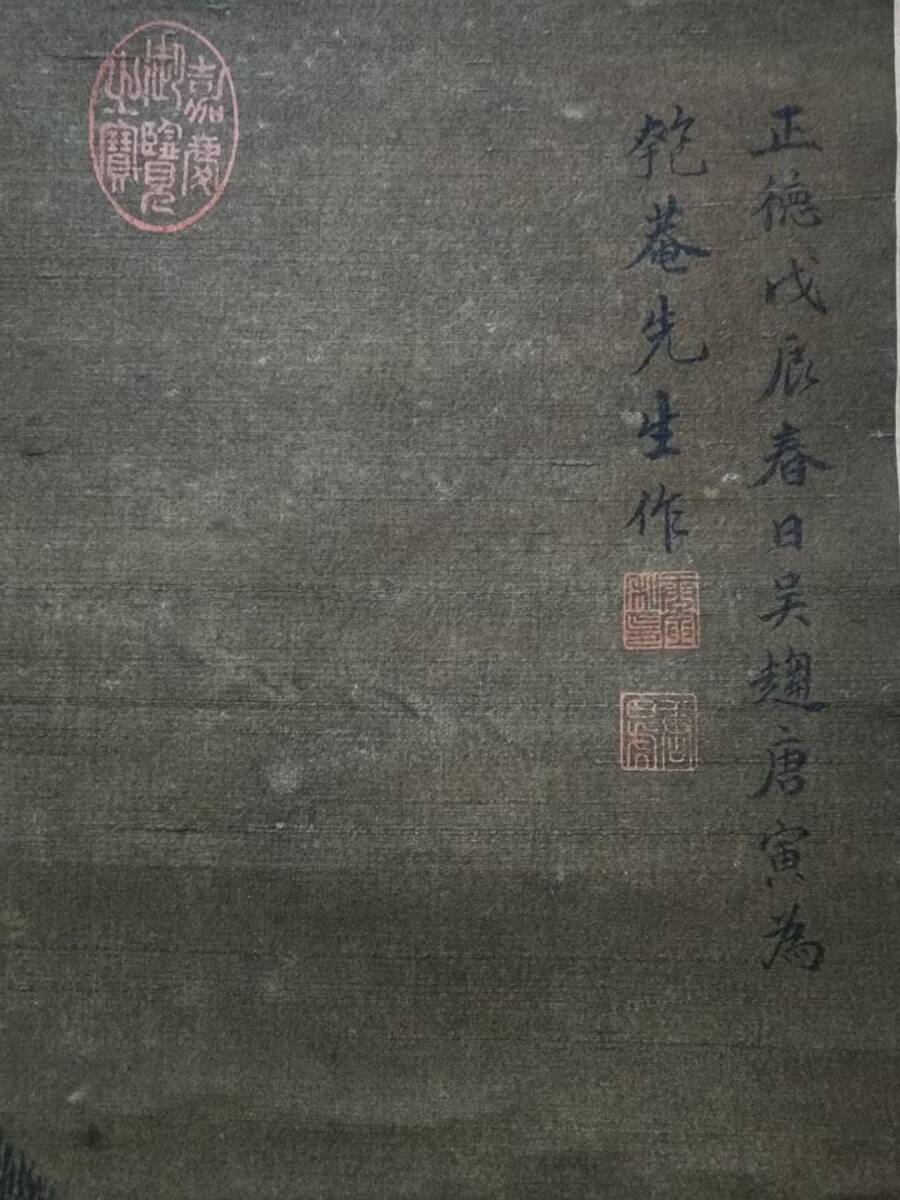 正德戊辰春日吴趨唐寅為
匏菴先生作
唐寅私印
嘉慶御覽之寶